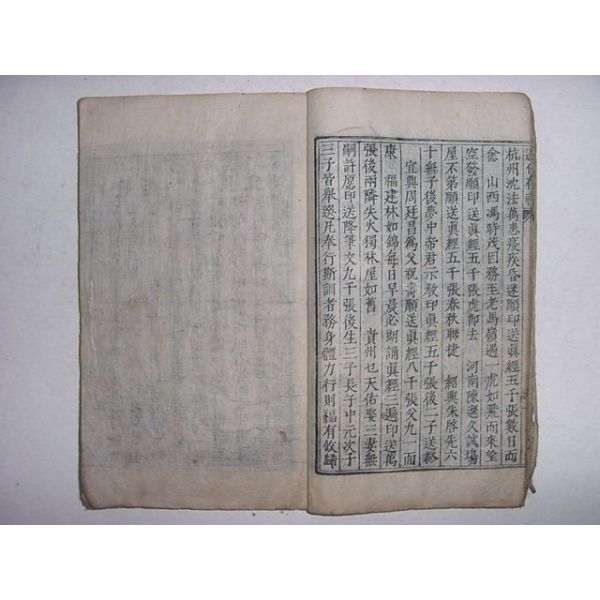 杭州沈法萬患痰疾昏迷願印送眞經五千張數日而
愈　山西馮時茂因務至老馬嶺遇　虎如飛而來望
空發願印送眞經五千張虎卽去　河南陳邃久試場
屋不第願送眞經五千張春秋聯捷　紹興朱啓先六
十無子後夢中帝君示敎印眞經五千張後二子送終
宜興周廷昌爲父祝壽願送眞經八千張父九一而
康　福建林如錦每日早晨必朗誦眞經三遍印送萬
張後兩隣失火獨林屋如舊　貴州乜天佑娶三妻無
嗣許愿印送隆筆文九千張後生三子長子中元次子
三子皆舉選凡奉行斯訓者務身體力行則福有攸歸